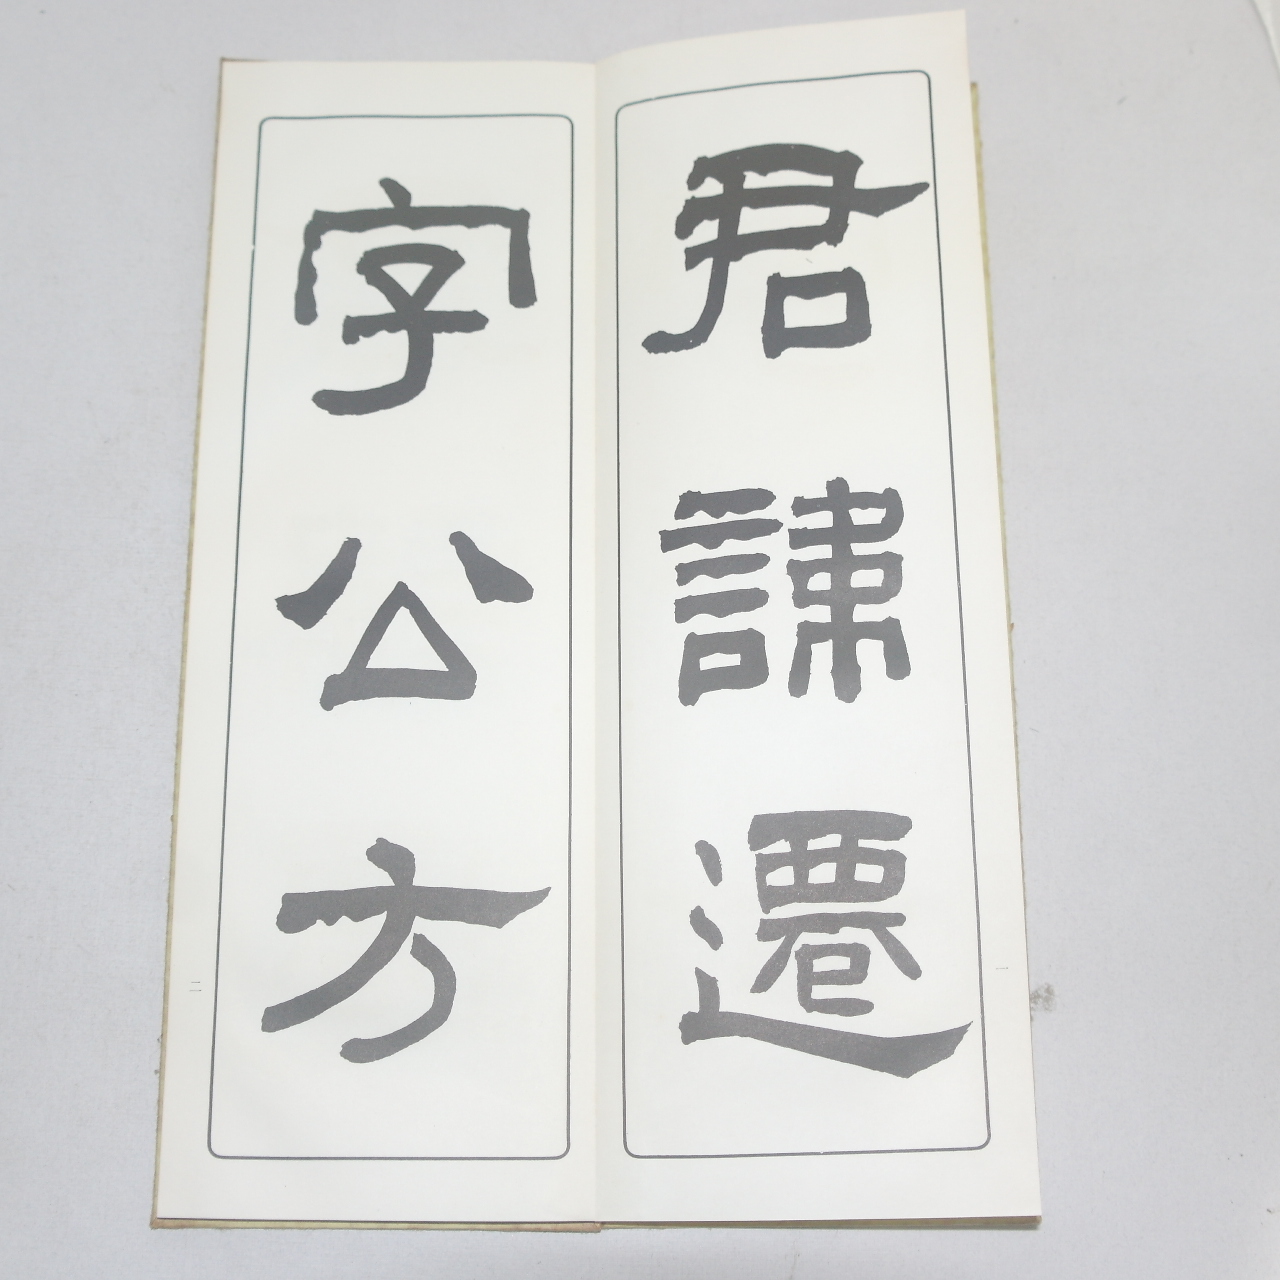 君諱遷
一
字公方
二